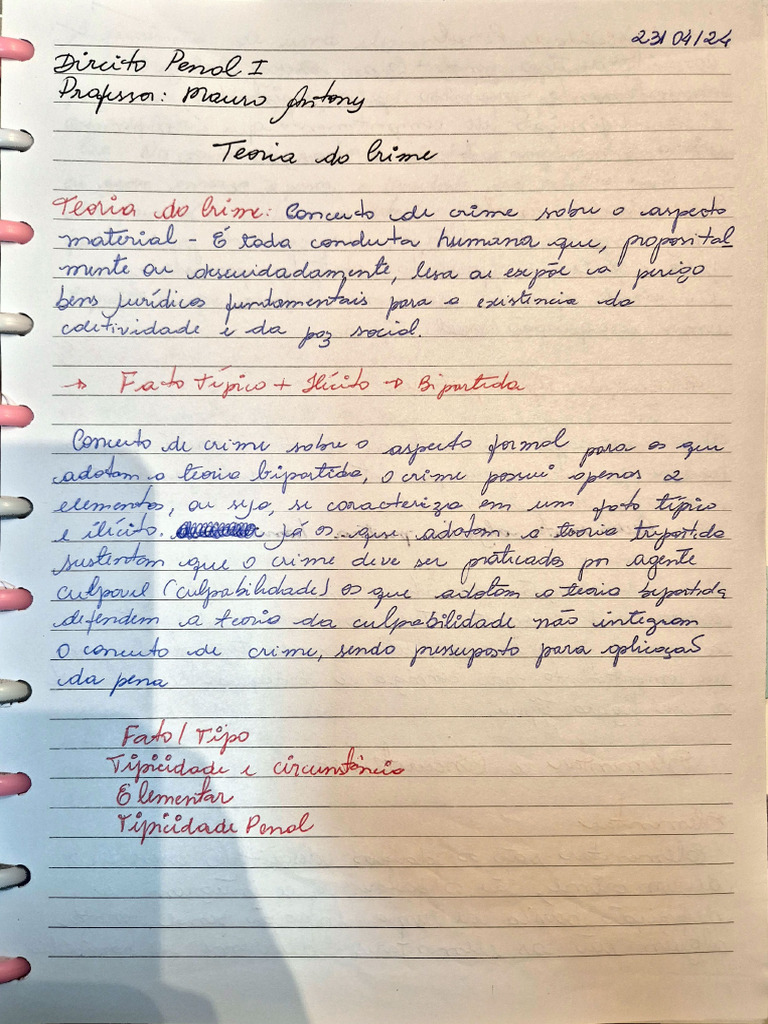 23/04/24
Direito Penal I
Professor: Mauro Antony
Teoria do Crime
Teoria do Crime: Conceito de crime sobre o aspecto
material - É toda conduta humana que, proposital
mente ou descuidadamente, lesa ou expõe a perigo
bens jurídicos fundamentais para a existência da
coletividade e da paz social.
→ Fato Típico + Ilícito → Bipartida
Conceito de crime sobre o aspecto formal para os que
adotam a teoria bipartida, o crime possui apenas 2
elementos, ou seja, se caracteriza em um fato típico
e ilícito. Já os que adotam a teoria tripartida
sustentam que o crime deve ser práticados por agente
culpavel (culpabilidade) os que adotam a teoria bipartida
defendem a teoria da culpabilidade não integram
o conceito de crime, sendo pressuposto para aplicação
da pena
Fato / Tipo
Tipicidade e circunstância
Elementar
Tipicidade Penal